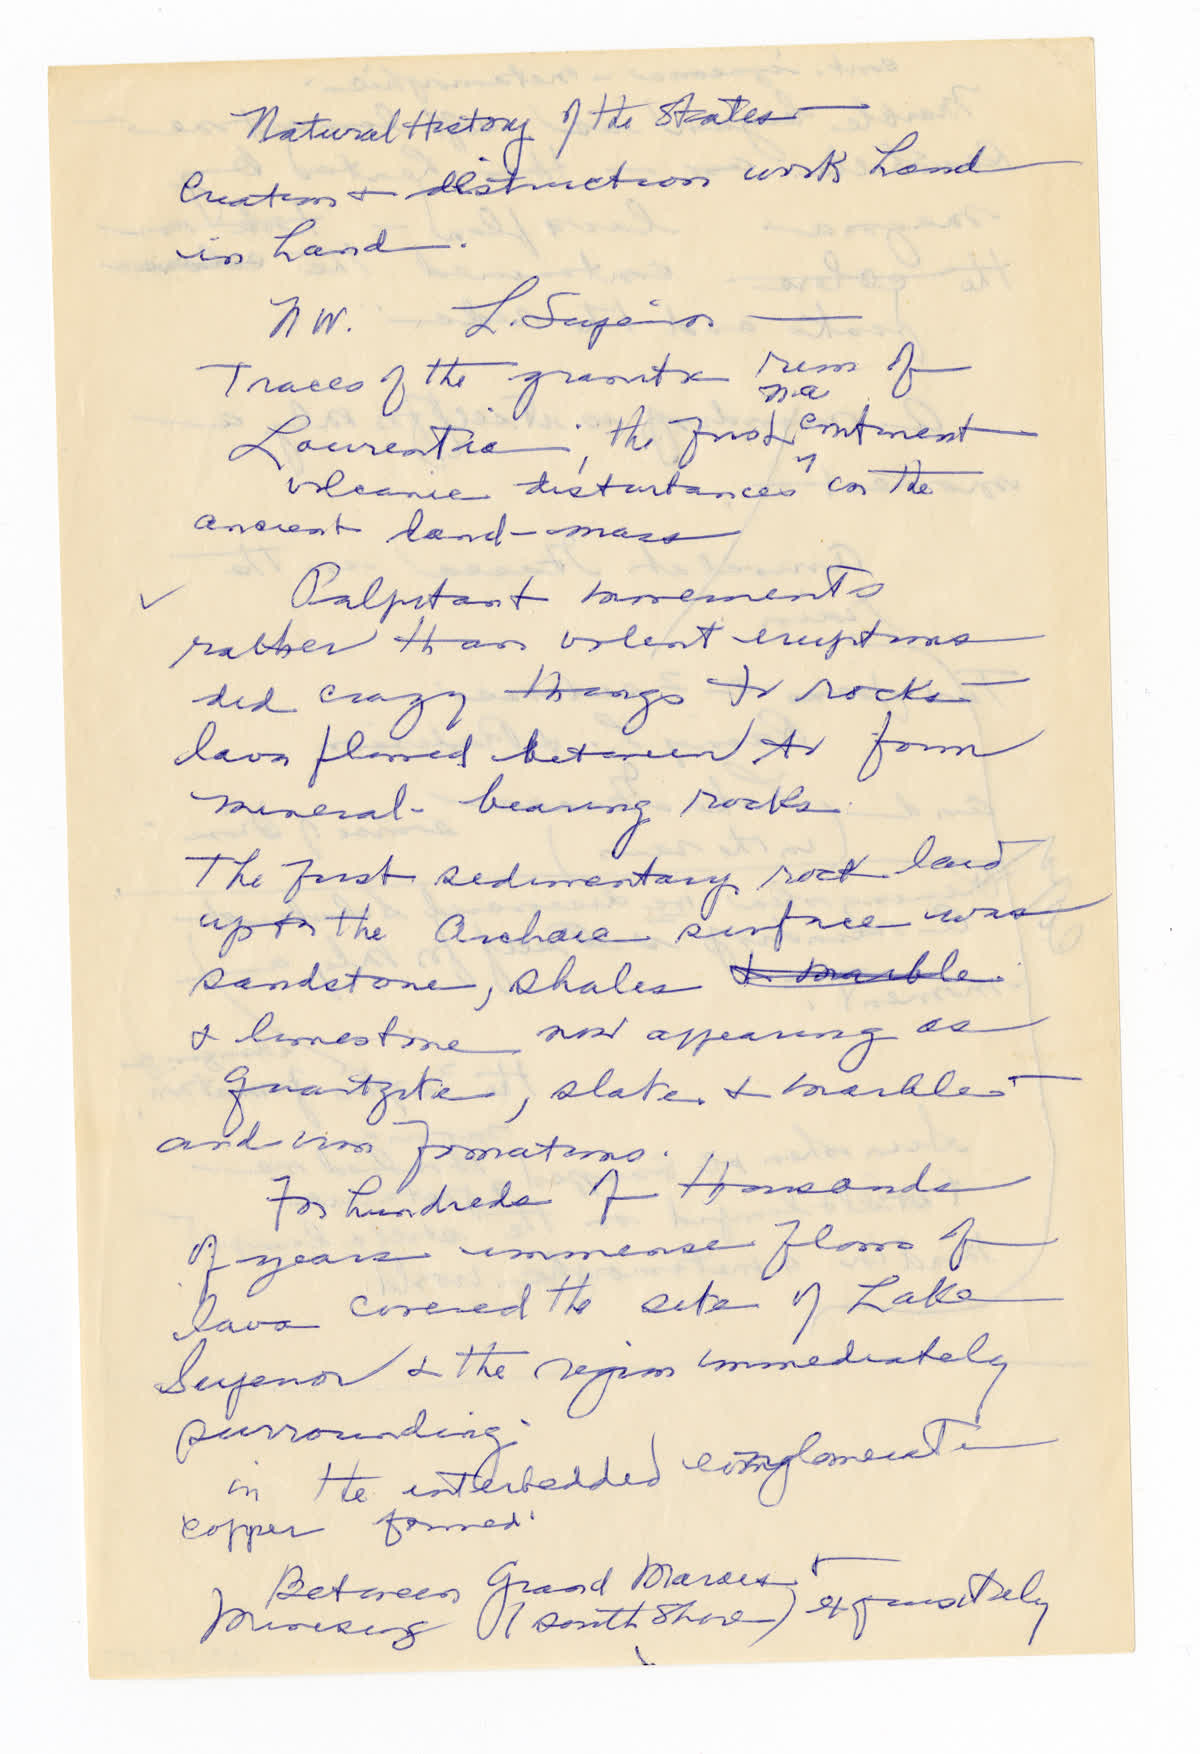 Natural History of the States —
Creation & distruction work hand
in hand.
NW. L. Superior —
Traces of the granite rim of
na
Laurentia, the first continent
volcanic disturbances on the
ancient land-mass
✓ Palpitant movements
rather than violent eruptions
did crazy things to rocks —
lava flowed between to form
mineral-bearing rocks.
The first sedimentary rock laid
upon the Archaic surface was
sandstone, shales & marble.
& limestone now appearing as
quartzite, slate & marble —
and iron formations.
For hundreds of thousands
of years immense flows of
lava covered the site of Lake
Superior & the region immediately
surrounding.
in the interbedded conglomerate
copper formed.
Between Grand Marais &
Munising (South Shore) exquisitely